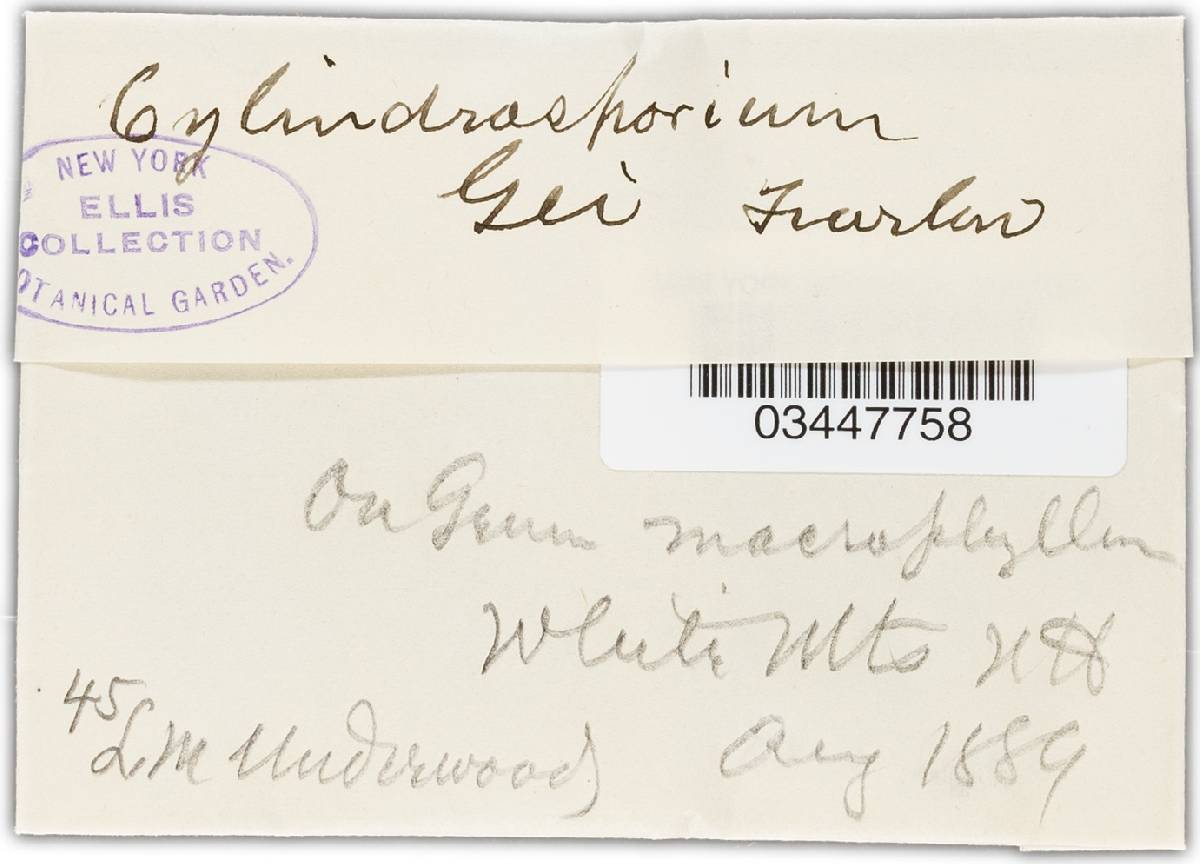 Cylindrosporium
Gei Farlow
NEW YORK
ELLIS
COLLECTION
BOTANICAL GARDEN.
03447758
On Geum macrophyllum
White Mts NH
45
L M Underwood Aug 1889